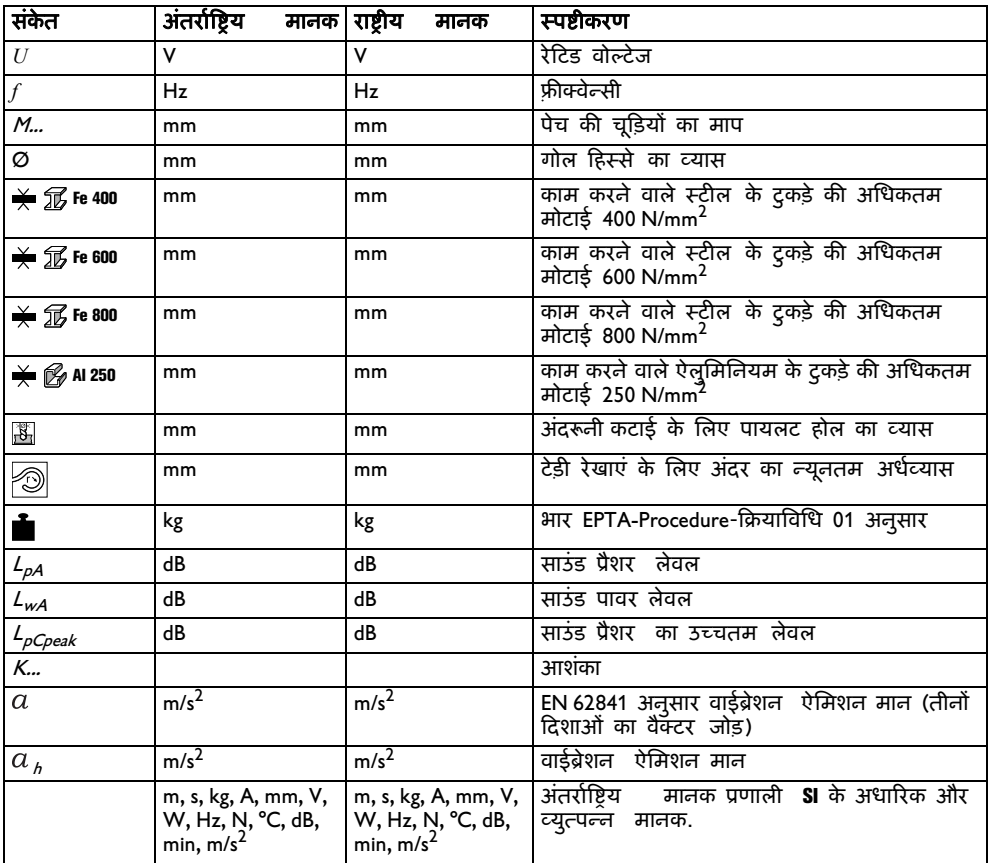 संकेत अंतर्राष्ट्रिय मानक राष्ट्रीय मानक स्पष्टीकरण
U V V रेटिड वोल्टेज
f Hz Hz फ़्रीक्वेन्सी
M... mm mm पेच की चूड़ियों का माप
Ø mm mm गोल हिस्से का व्यास
Fe 400 mm mm काम करने वाले स्टील के टुकड़े की अधिकतम
मोटाई 400 N/mm²
Fe 600 mm mm काम करने वाले स्टील के टुकड़े की अधिकतम
मोटाई 600 N/mm²
Fe 800 mm mm काम करने वाले स्टील के टुकड़े की अधिकतम
मोटाई 800 N/mm²
Al 250 mm mm काम करने वाले ऐलुमिनियम के टुकड़े की अधिकतम
मोटाई 250 N/mm²
mm mm अंदरूनी कटाई के लिए पायलट होल का व्यास
mm mm टेड़ी रेखाएं के लिए अंदर का न्यूनतम अर्धव्यास
kg kg भार EPTA-Procedure-क्रियाविधि 01 अनुसार
LpA dB dB साउंड प्रैशर लेवल
LwA dB dB साउंड पावर लेवल
LpCpeak dB dB साउंड प्रैशर का उच्चतम लेवल
K... आशंका
a m/s² m/s² EN 62841 अनुसार वाईब्रेशन ऐमिशन मान (तीनों
दिशाओं का वैक्टर जोड़)
a h m/s² m/s² वाईब्रेशन ऐमिशन मान
m, s, kg, A, mm, V, m, s, kg, A, mm, V, अंतर्राष्ट्रिय मानक प्रणाली SI के अधारिक और
W, Hz, N, °C, dB, W, Hz, N, °C, dB, व्युत्पन्न मानक.
min, m/s² min, m/s²